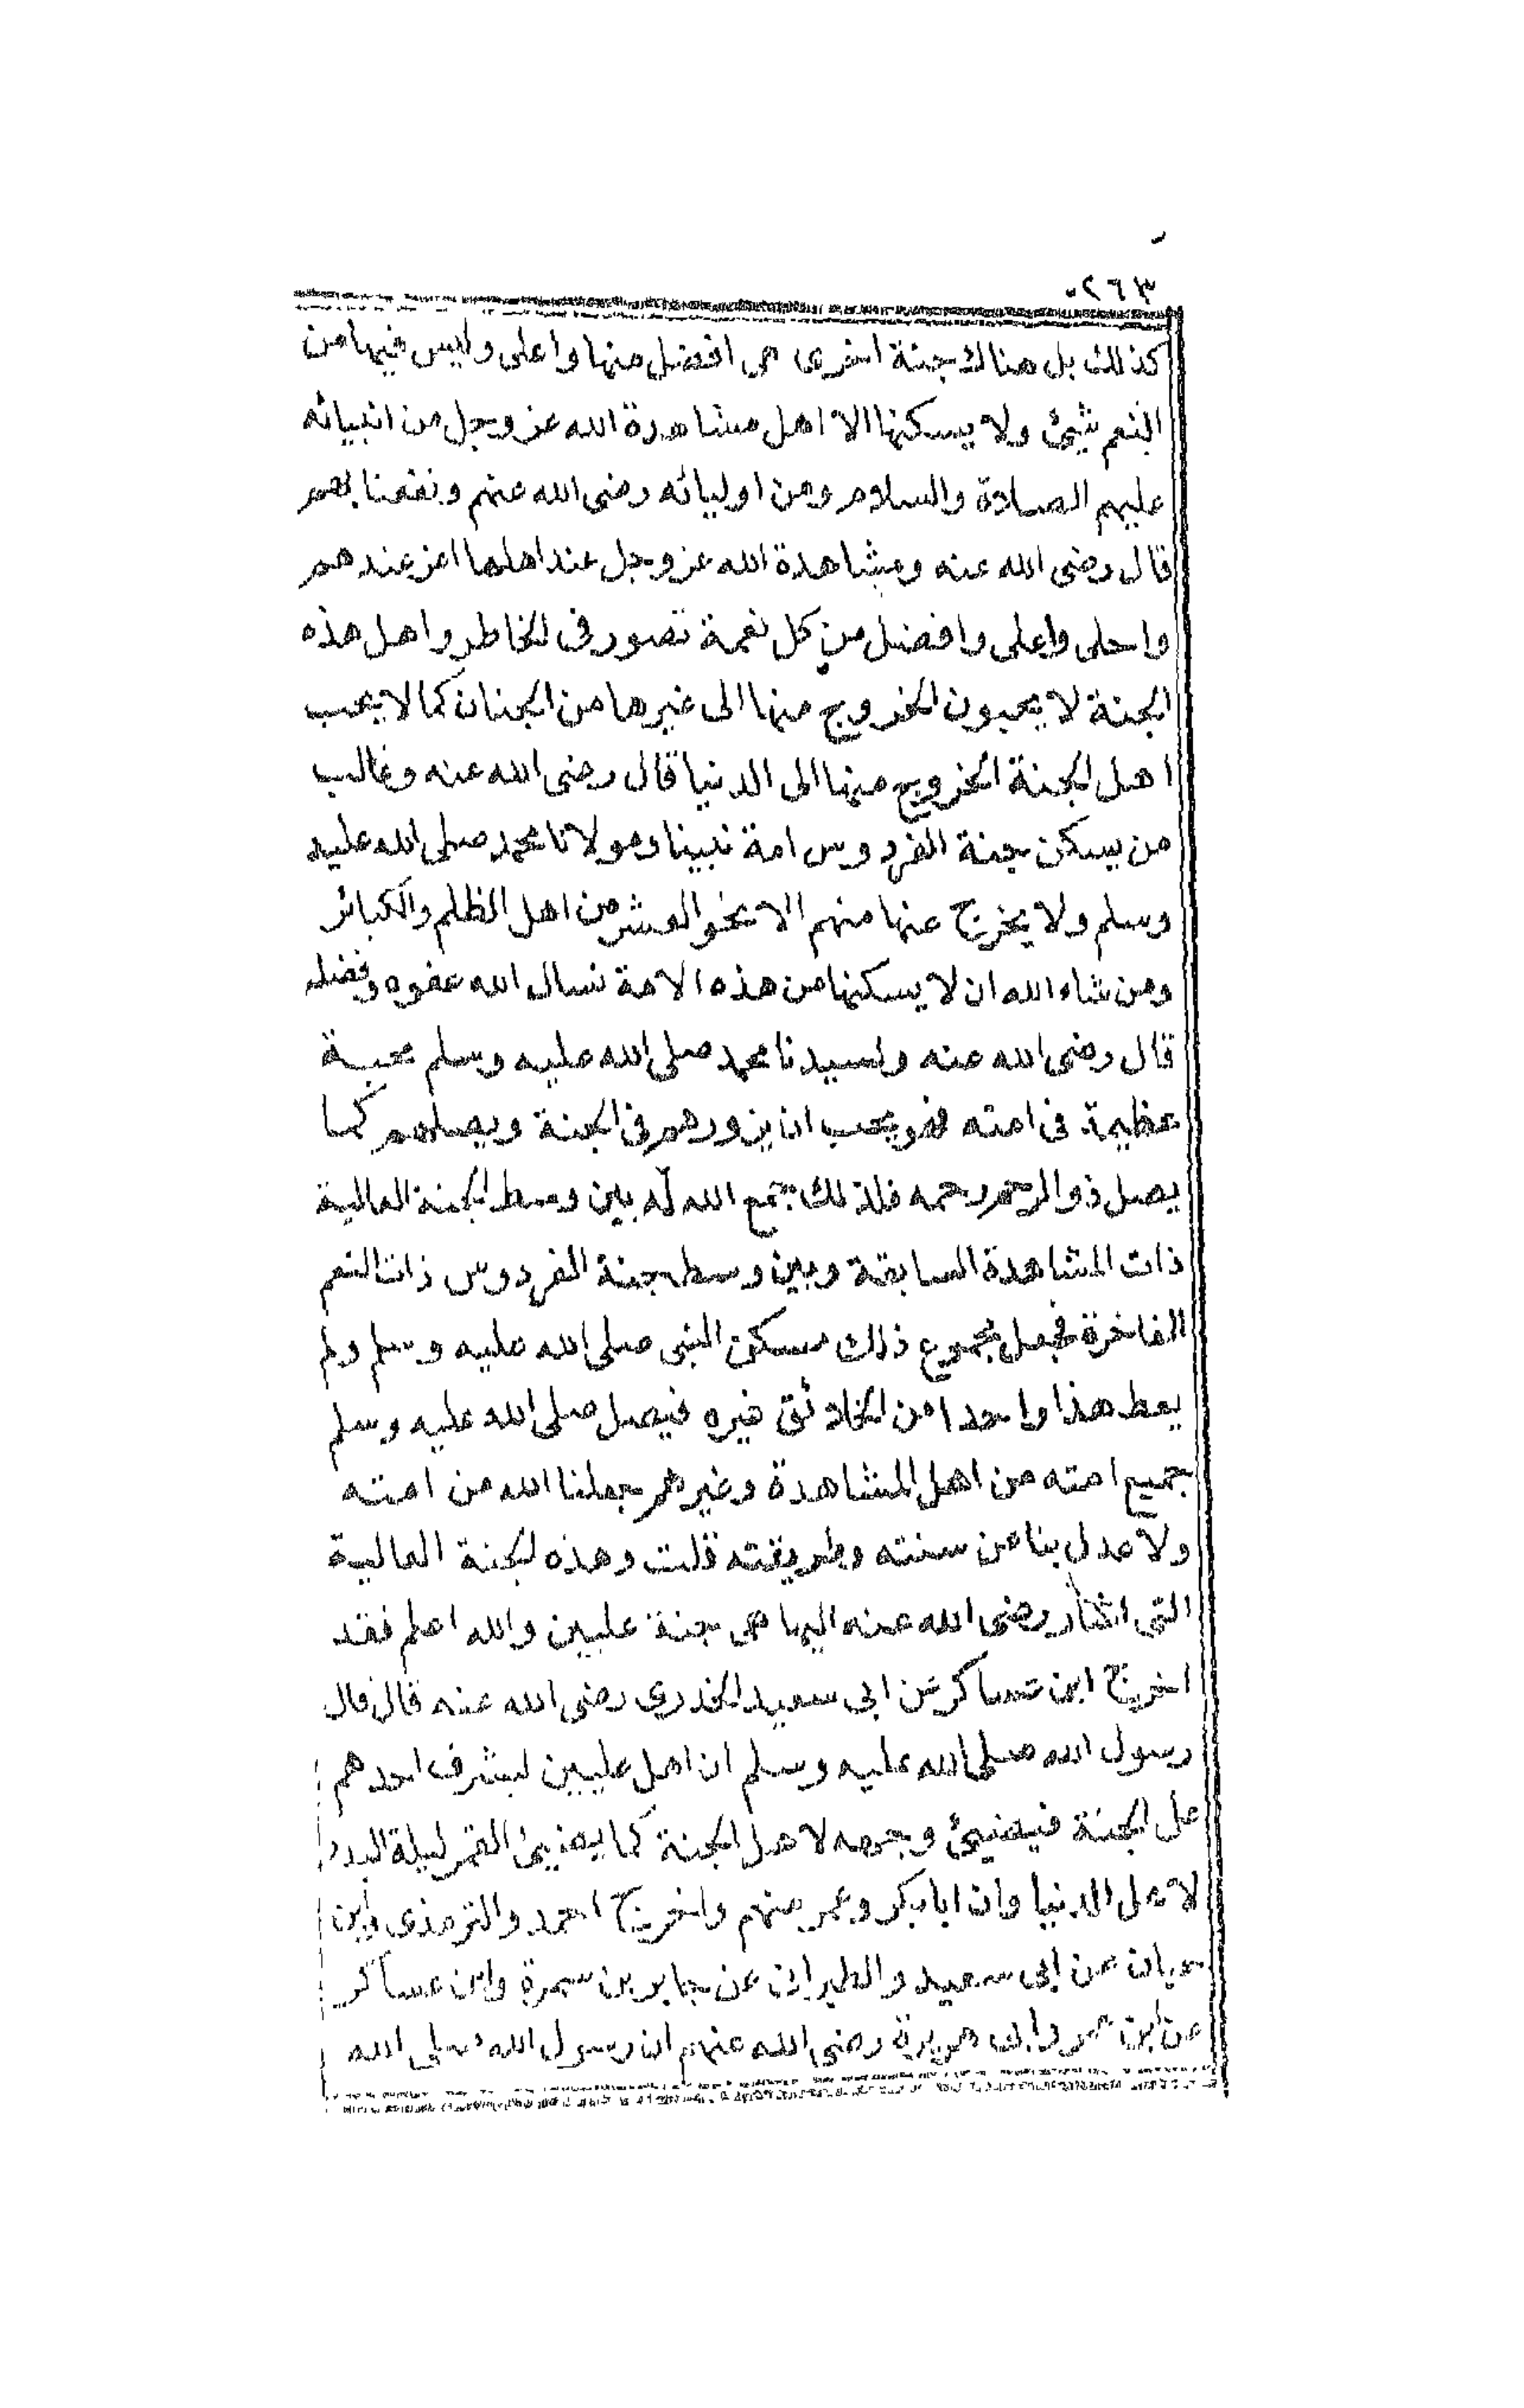 ٢٦٣
كذلك بل هناك جنة اخرى هى افضل منها واعلى وليس فيها من
النعم شيئ ولا يسكنها الا اهل مشاهدة الله عز وجل من انبيائه
عليهم الصلاة والسلام ومن اوليائه رضى الله عنهم ونفعنا بهم
قال رضى الله عنه ومشاهدة الله عز وجل عند اهلها اعز عندهم
واحلى واعلى وافضل من كل نعمة تصور فى الخاطر واهل هذه
الجنة لا يحبون الخروج منها الى غيرها من الجنان كما لا يحب
اهل الجنة الخروج منها الى الدنيا قال رضى الله عنه وغالب
من يسكن جنة الفردوس امة نبينا ومولانا محمد صلى الله عليه
وسلم ولا يخرج عنها منهم الا نحو العشر من اهل الظلم والكبائر
ومن شاء الله ان لا يسكنها من هذه الامة نسال الله عفوه وفضله
قال رضى الله عنه ولسيدنا محمد صلى الله عليه وسلم محبة
عظيمة فى امته فهو يحب ان يزورهم فى الجنة ويصلهم كما
يصل ذو الرحم رحمه فلذلك يجمع الله له بين وسط الجنة العالية
ذات المشاهدة السابقة وبين وسط جنة الفردوس ذات النعم
الفاخرة فجعل مجموع ذلك مسكن النبى صلى الله عليه وسلم ولم
يعط هذا واحدا من الخلائق غيره فيصل صلى الله عليه وسلم
جميع امته من اهل المشاهدة وغيرهم جعلنا الله من امته
ولا عدل بنا عن سنته وطريقته قلت وهذه الجنة العالية
التى اشار رضى الله عنه اليها هى جنة عليين والله اعلم فقد
اخرج ابن عساكر عن ابى سعيد الخدرى رضى الله عنه قال قال
رسول الله صلى الله عليه وسلم ان اهل عليين ليشرف احدهم
على الجنة فيضيئ وجهه لاهل الجنة كما يضيئ القمر ليلة البدر
لاهل الدنيا وان ابا بكر وعمر منهم واخرج احمد والترمذى وابن
حبان عن ابى سعيد والطبرانى عن جابر بن سمرة وابن عساكر
عن ابن عمر وابى هريرة رضى الله عنهم ان رسول الله صلى الله